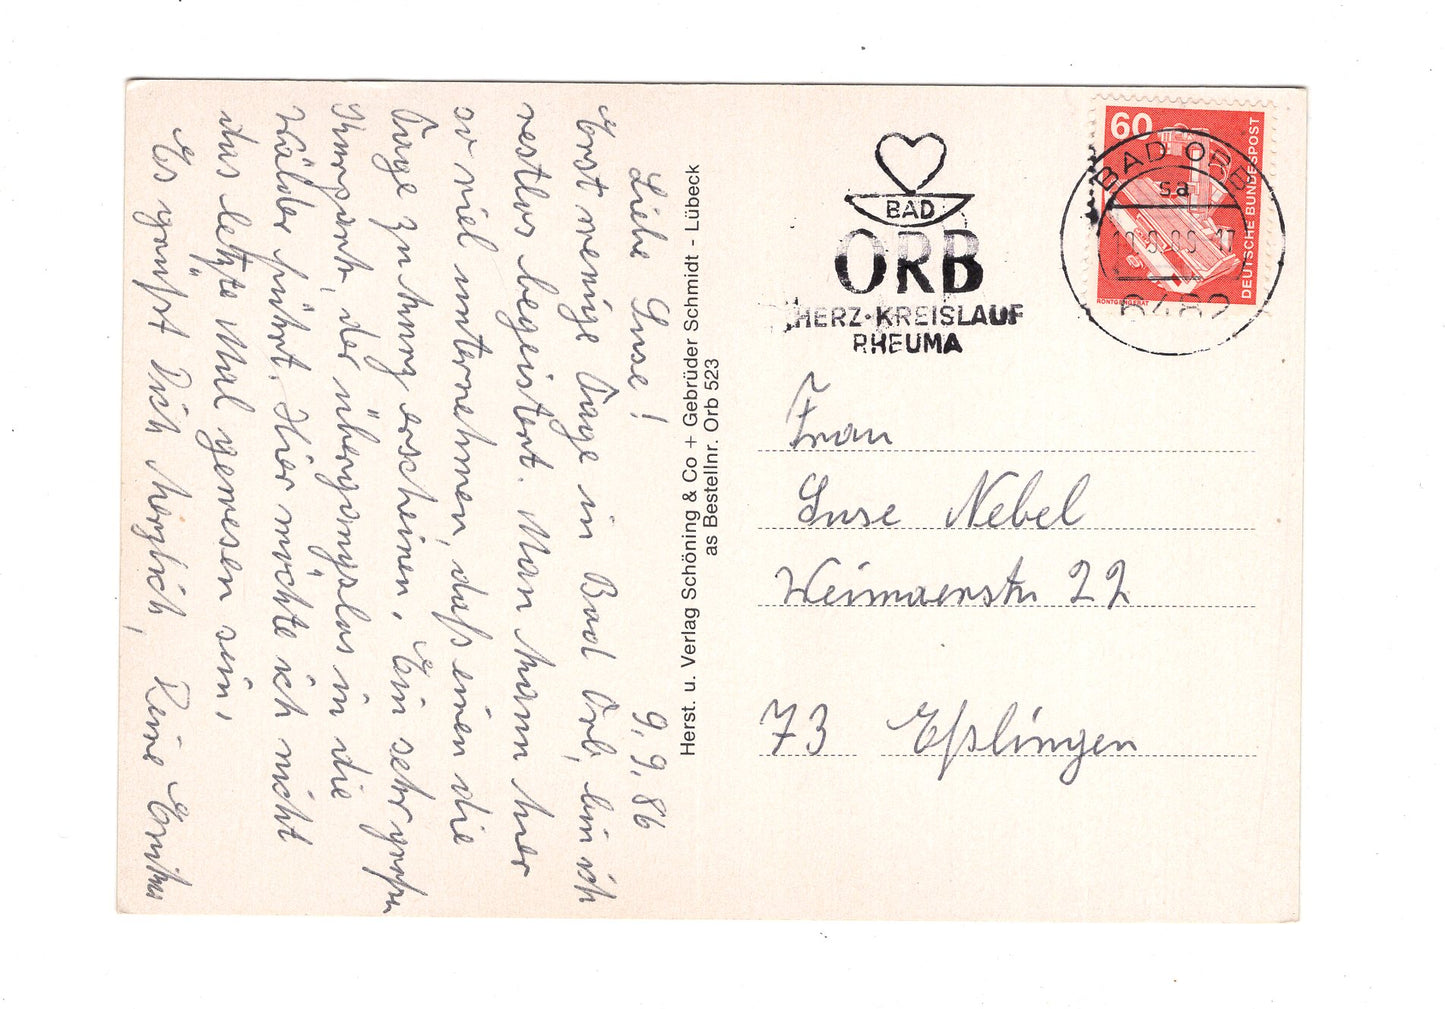 9. 9. 86
Liebe Suse!
Erst wenige Tage in Bad Orb, bin ich
restlos begeistert. Man kann hier
so viel unternehmen, daß einen die
Tage zu kurz erscheinen. Ein sehr großer
Kurpark, der übergangslos in die
Wälder führt. Hier möchte ich nicht
das letzte Mal gewesen sein,
Es grüßt Dich herzlich, Deine
Herst. u. Verlag Schöning & Co + Gebrüder Schmidt - Lübeck
as Bestellnr. Orb 523
BAD
ORB
HERZ·KREISLAUF
RHEUMA
60
DEUTSCHE BUNDESPOST
RÖNTGENGERÄT
BAD ORB
sa
6482
Frau
Suse Nebel
Weimaerstr 22
73 Eßlingen